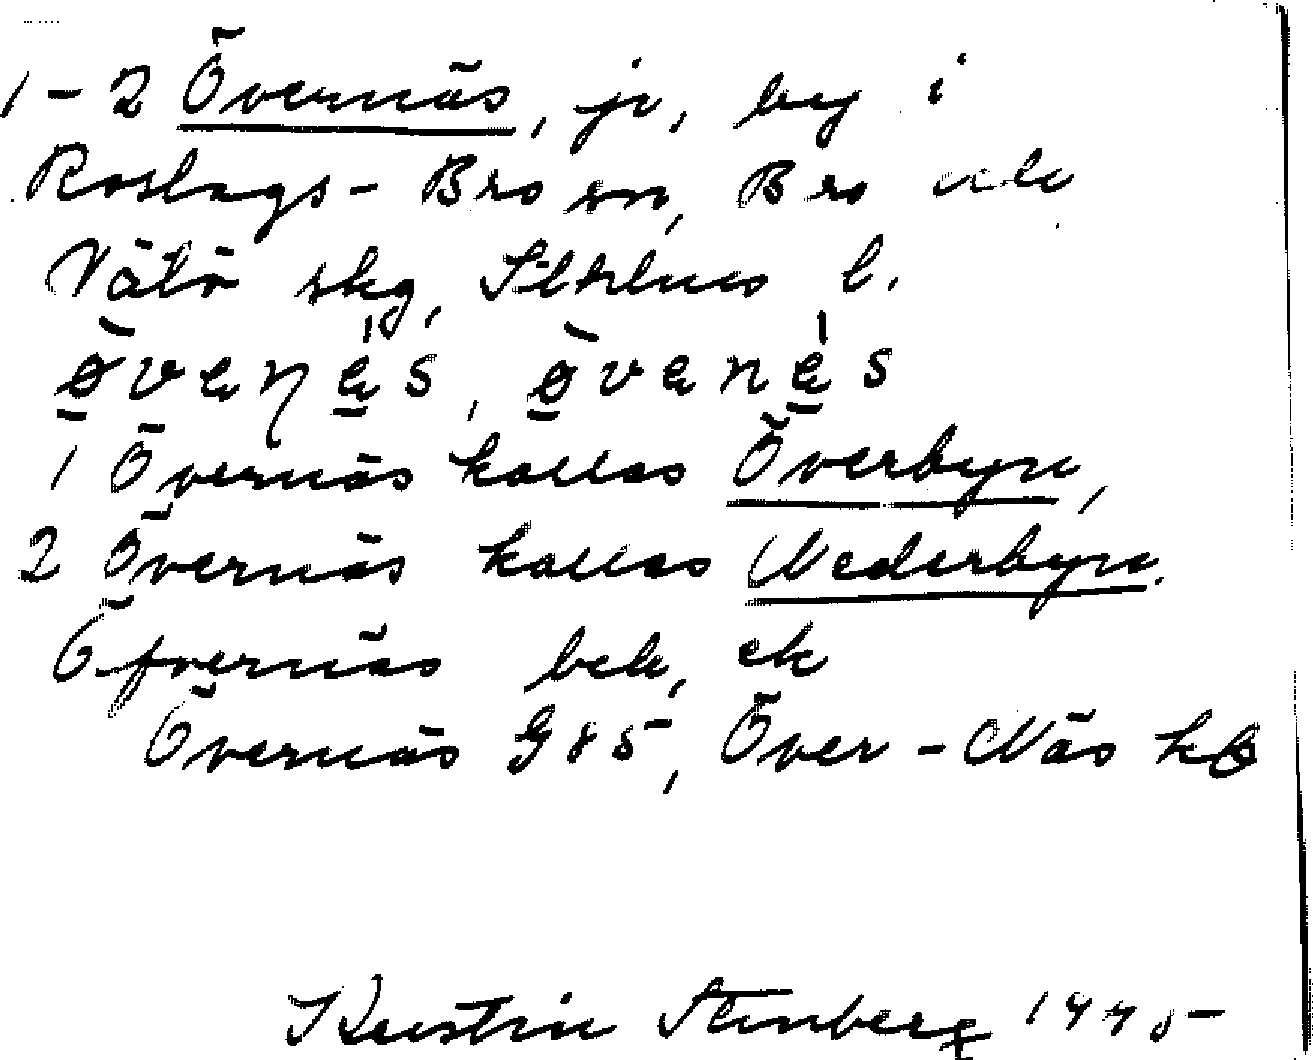 1-2 Övernäs, jr, by i
Roslags-Bro sn, Bro och
Vätö skg, Sthlms l.
1 Övernäs kallas Överbyn,
2 Övernäs kallas Nederbyn.
Öfvernäs bek, ek
Övernäs G85, Över-Näs
Kerstin Stenberg